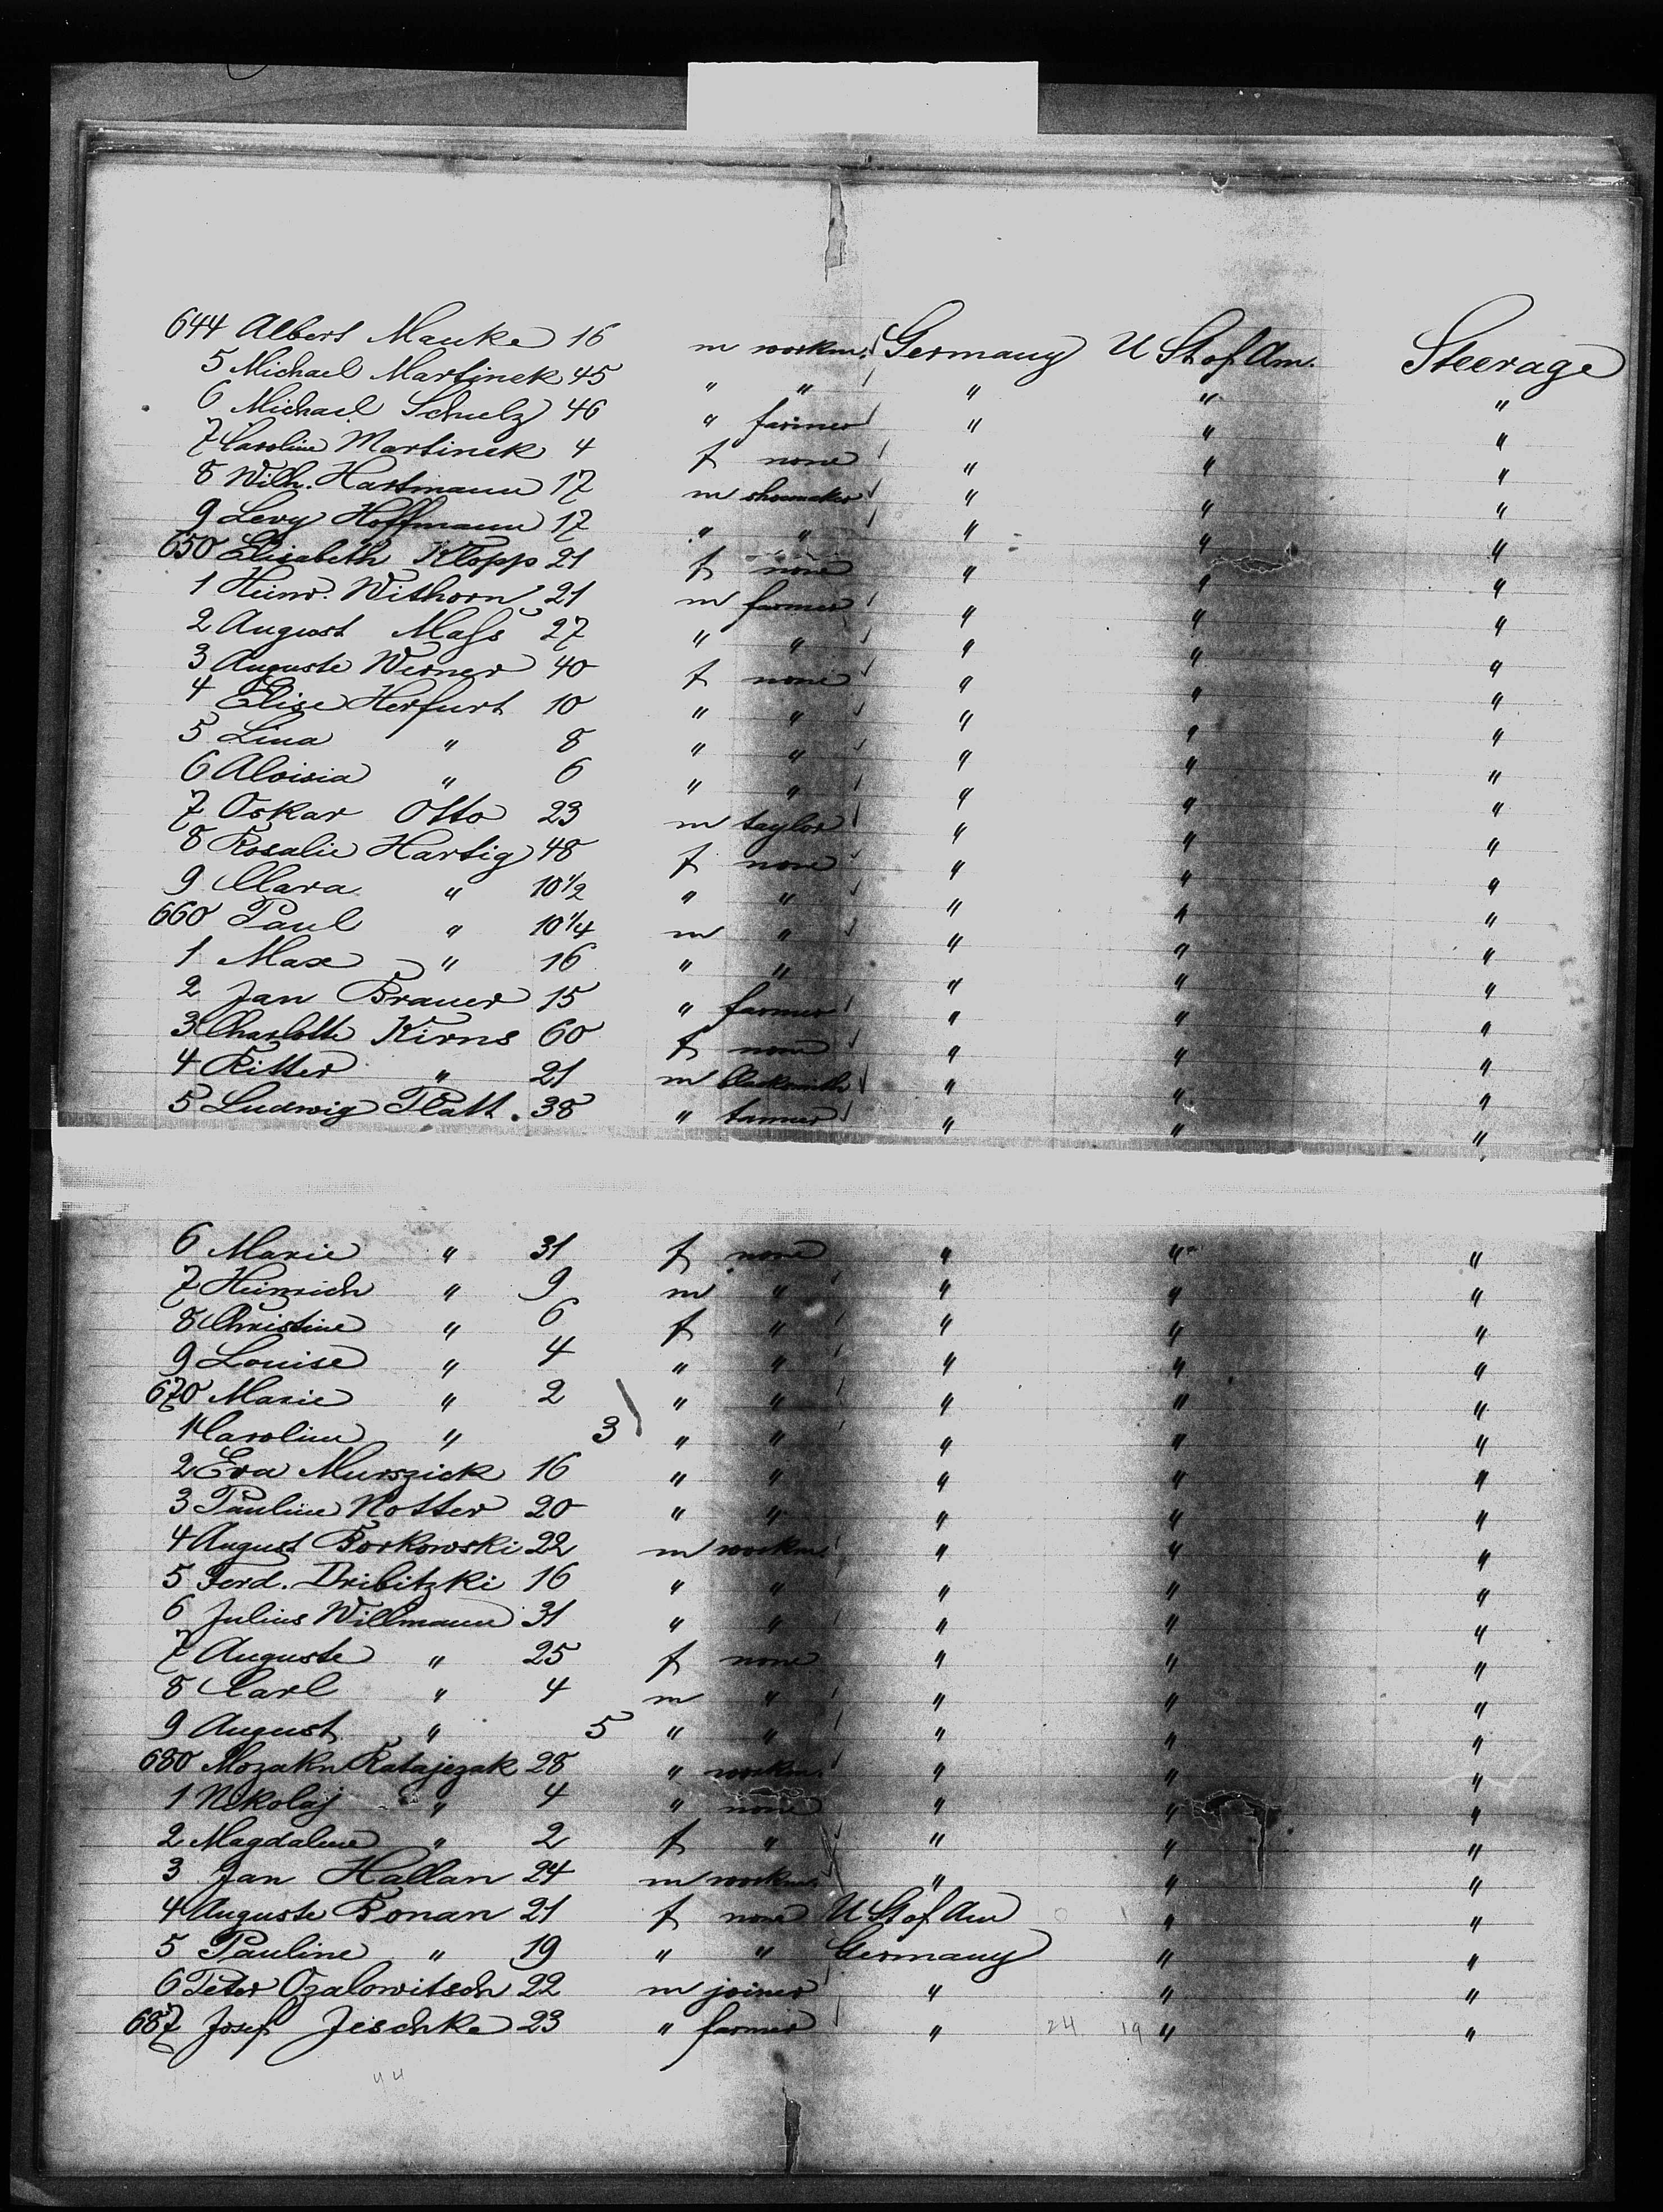 644 Albert Manke 16 m workm. Germany U St of Am. Steerage
5 Michael Martinek 45 " " " " "
6 Michael Schulz 46 " farmer " " "
7 Caroline Martinek 4 f none " " "
8 Wilh. Hartmann 17 m shoemaker " " "
9 Levy Hoffmann 17 " " " " "
650 Elisabeth Klopp 21 f none " " "
1 Heinr. Withorn 21 m farmer " " "
2 August Maſs 27 " " " " "
3 Auguste Werner 40 f none " " "
4 Elise Herfurt 10 " " " " "
5 Lina " 8 " " " " "
6 Aloisia " 6 " " " " "
7 Oskar Otto 23 m taylor " " "
8 Rosalie Hartig 48 f none " " "
9 Clara " 10 1/2 " " " " "
660 Paul " 10 1/4 m " " " "
1 Max " 16 " " " " "
2 Jan Brauer 15 " farmer " " "
3 Charlotte Kirns 60 f none " " "
4 Ritter " 21 m blacksmith " " "
5 Ludwig Platt. 38 " tanner " " "
6 Marie " 31 f none " " "
7 Heinrich " 9 m " " " "
8 Christine " 6 f " " " "
9 Louise " 4 " " " " "
670 Marie " 2 " " " " "
1 Caroline " 3 " " " " "
2 Eva Murszick 16 " " " " "
3 Pauline Notter 20 " " " " "
4 August Borkowski 22 m workm. " " "
5 Ferd. Dribitzki 16 " " " " "
6 Julius Willmann 31 " " " " "
7 Auguste " 25 f none " " "
8 Carl " 4 m " " " "
9 August " 5 " " " " "
680 Mozakn Ratajczak 28 " workm. " " "
1 Nikolaj " 4 " none " " "
2 Magdalene " 2 f " " " "
3 Jan Hallan 24 m workm. " " "
4 Auguste Bonan 21 f none U St of Am " "
5 Pauline " 19 " " Germany " "
6 Peter Ozalowitsch 22 m joiner " " "
687 Josef Jeschke 23 " farmer " 24 19 " "
44